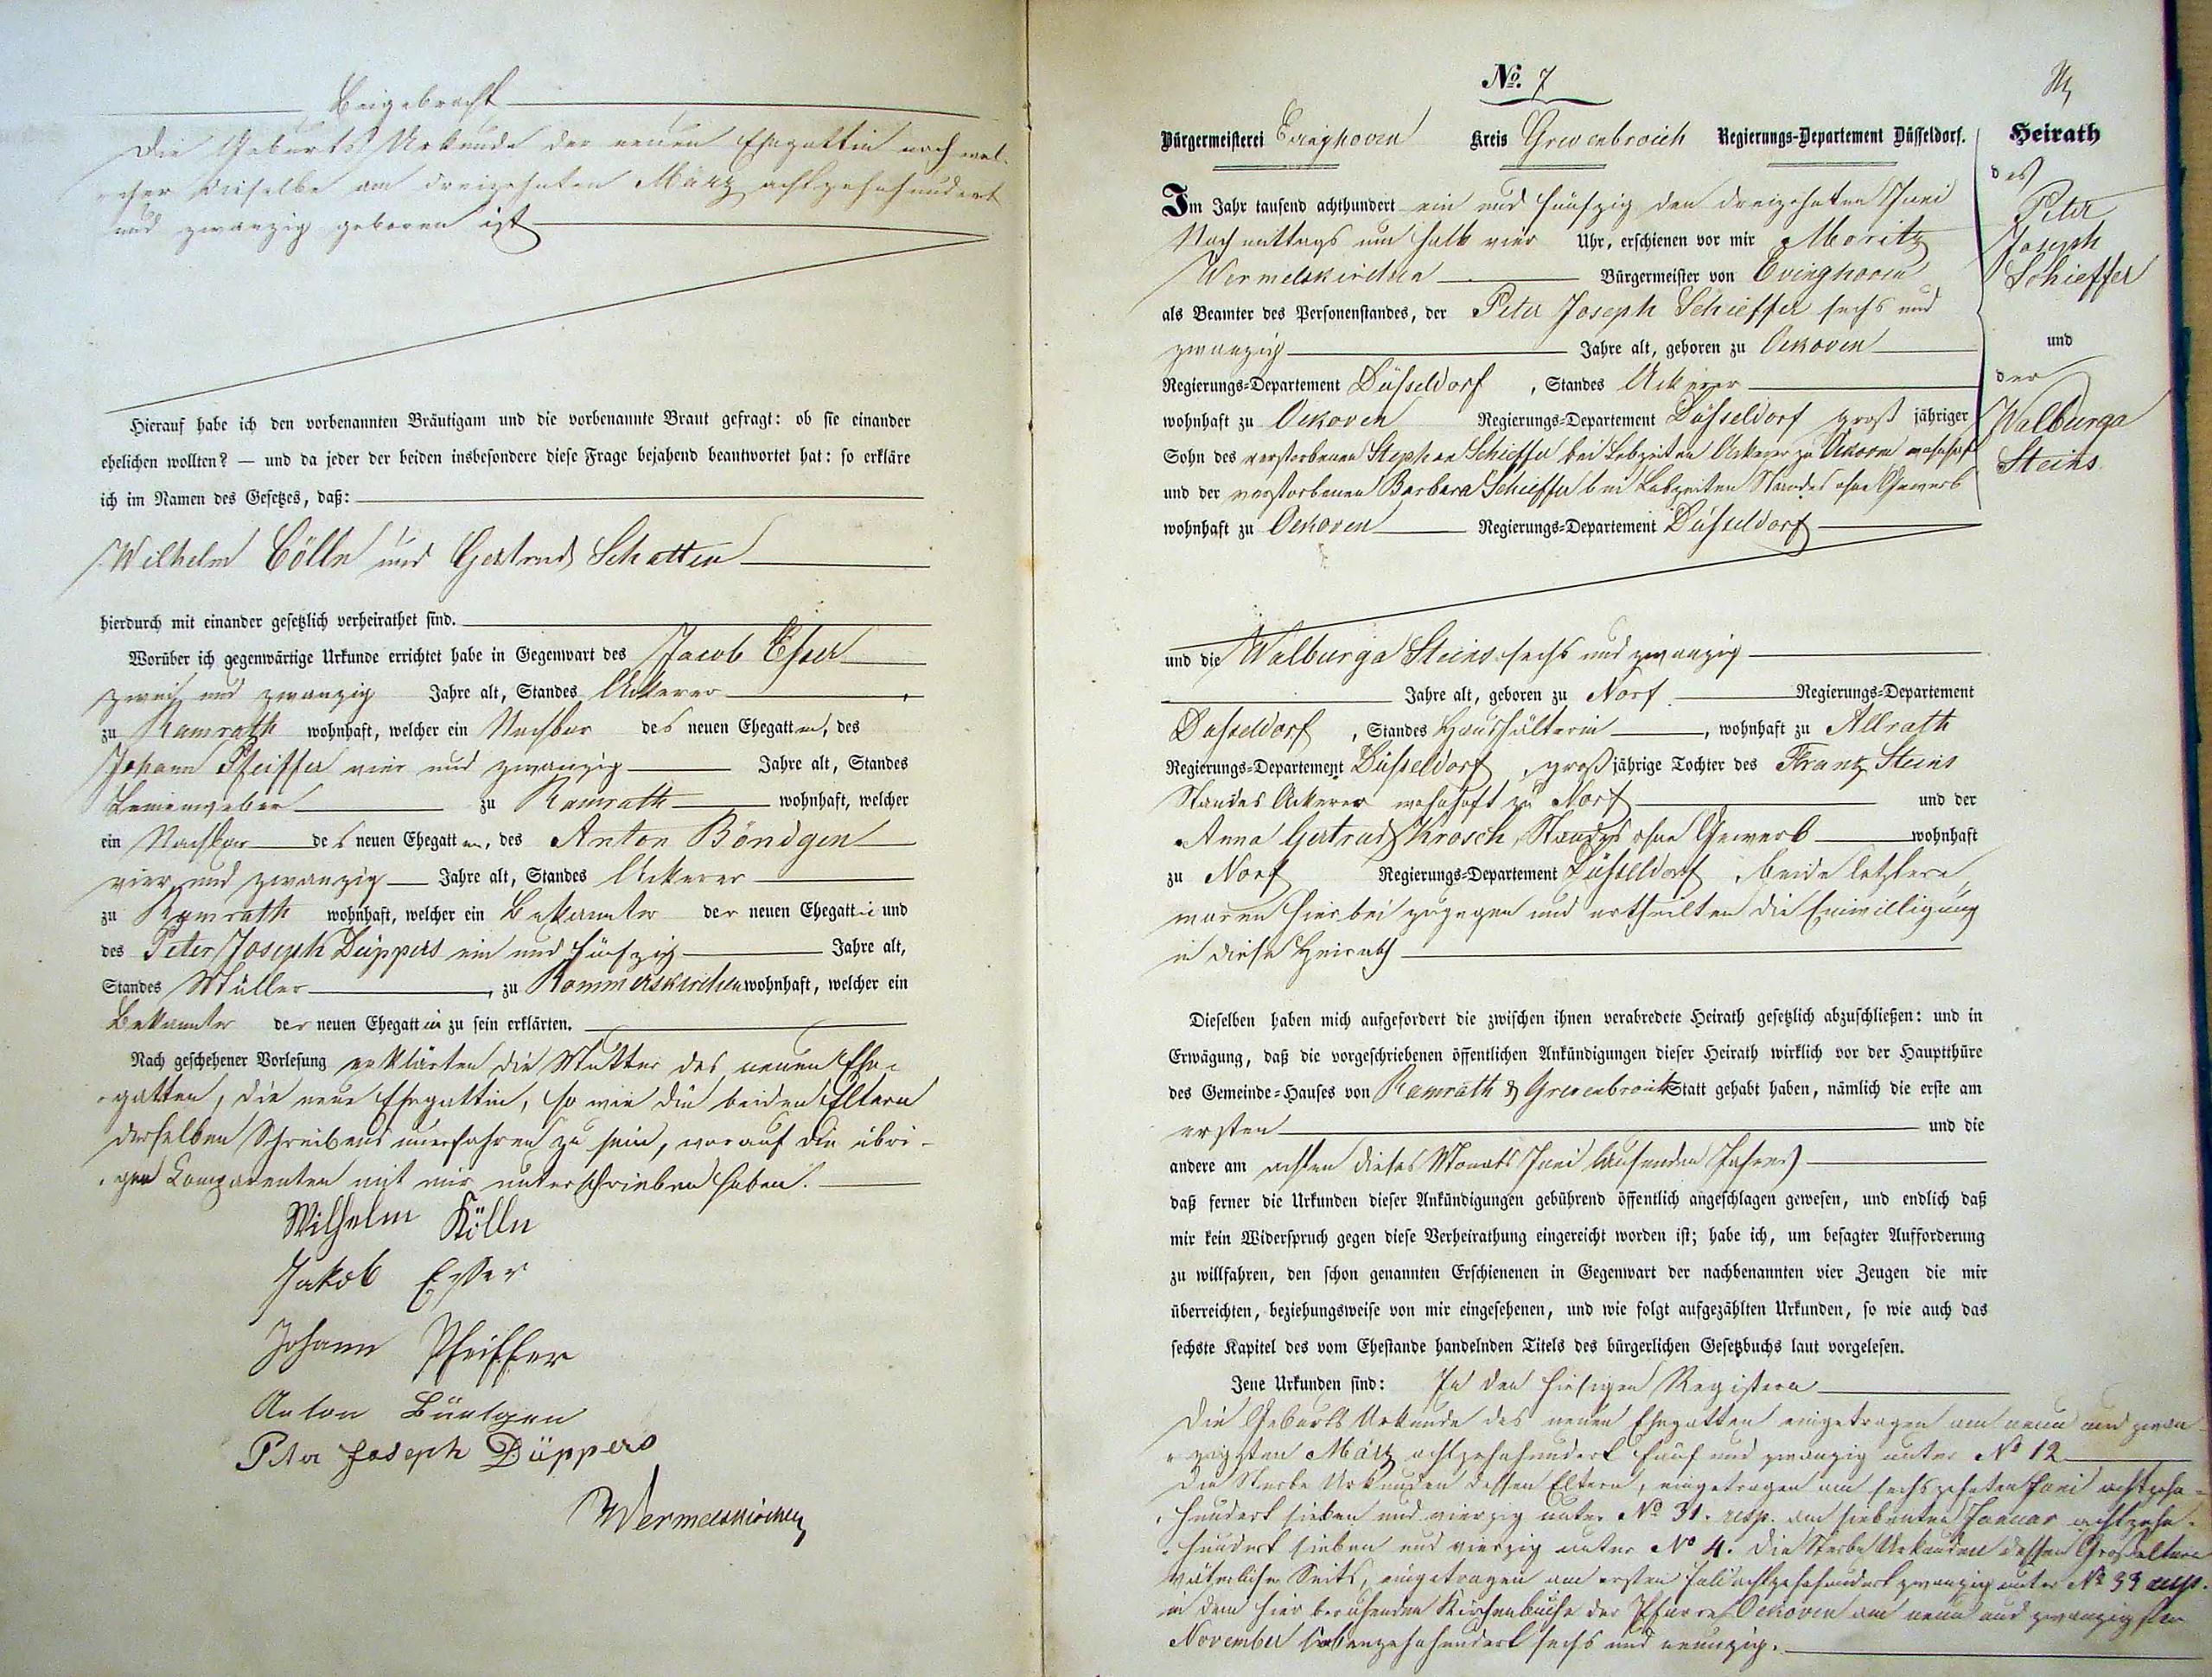 Beigebracht
Die Geburts Urkunde der neuen Ehegattin nach wel-
cher dieselbe am dreizehnten März achtzehnhundert
und zwanzig geboren ist
Hierauf habe ich den vorbenannten Bräutigam und die vorbenannte Braut gefragt: ob sie einander
ehelichen wollten? — und da jeder der beiden insbesondere diese Frage bejahend beantwortet hat: so erkläre
ich im Namen des Gesetzes, daß:
Wilhelm Cölln und Gertrud Schatten
hierdurch mit einander gesetzlich verheirathet sind.
Worüber ich gegenwärtige Urkunde errichtet habe in Gegenwart des Jacob Esser
zwei und zwanzig Jahre alt, Standes Ackerer
zu Ramrath wohnhaft, welcher ein Nachbar des neuen Ehegatten, des
Johann Pfeiffer vier und zwanzig Jahre alt, Standes
Leinenweber zu Ramrath wohnhaft, welcher
ein Nachbar des neuen Ehegatten, des Anton Böndgen
vier und zwanzig Jahre alt, Standes Ackerer
zu Ramrath wohnhaft, welcher ein Bekannter der neuen Ehegattin und
des Peter Joseph Düppers ein und fünfzig Jahre alt,
Standes Müller, zu Rommerskirchen wohnhaft, welcher ein
Bekannter der neuen Ehegattin zu sein erklärten.
Nach geschehener Vorlesung erklärten die Mutter des neuen Ehe-
gatten, die neue Ehegattin, so wie die beiden Eltern
derselben Schreibens unerfahren zu sein, worauf die übri-
gen Comparenten mit mir unterschrieben haben.
Wilhelm Kölln
Jakob Esser
Johann Pfeiffer
Anton Büntgen
Peter Joseph Düppers
Wermelskirchen
No. 7
Bürgermeisterei Evinghoven Kreis Grevenbroich Regierungs-Departement Düsseldorf.
Im Jahr tausend achthundert ein und fünfzig den dreizehnten Juni
Nachmittags um halb vier Uhr, erschienen vor mir Moritz
Wermelskirchen Bürgermeister von Evinghoven
als Beamter des Personenstandes, der Peter Joseph Schieffer sechs und
zwanzig Jahre alt, geboren zu Oekoven
Regierungs-Departement Düsseldorf, Standes Ackerer
wohnhaft zu Oekoven Regierungs-Departement Düsseldorf groß jähriger
Sohn des verstorbenen Stephan Schieffer bei Lebzeiten Ackerer zu Oekoven wohnhaft
und der verstorbenen Barbara Schieffer bei Lebzeiten Standes ohne Gewerb
wohnhaft zu Oekoven Regierungs-Departement Düsseldorf
und die Walburga Steins sechs und zwanzig
Jahre alt, geboren zu Norf Regierungs-Departement
Düsseldorf, Standes Haushälterin, wohnhaft zu Allrath
Regierungs-Departement Düsseldorf, großjährige Tochter des Franz Steins
Standes Ackerer wohnhaft zu Norf und der
Anna Gertrud Krosch, Standes ohne Gewerb wohnhaft
zu Norf Regierungs-Departement Düsseldorf, beide letztere
waren hierbei zugegen und ertheilten die Einwilligung
in diese Heirath
Dieselben haben mich aufgefordert die zwischen ihnen verabredete Heirath gesetzlich abzuschließen: und in
Erwägung, daß die vorgeschriebenen öffentlichen Ankündigungen dieser Heirath wirklich vor der Hauptthüre
des Gemeinde-Hauses von Ramrath & Grevenbroich Statt gehabt haben, nämlich die erste am
ersten und die
andere am achten dieses Monats Juni laufenden Jahres
daß ferner die Urkunden dieser Ankündigungen gebührend öffentlich angeschlagen gewesen, und endlich daß
mir kein Widerspruch gegen diese Verheirathung eingereicht worden ist; habe ich, um besagter Aufforderung
zu willfahren, den schon genannten Erschienenen in Gegenwart der nachbenannten vier Zeugen die mir
überreichten, beziehungsweise von mir eingesehenen, und wie folgt aufgezählten Urkunden, so wie auch das
sechste Kapitel des vom Ehestande handelnden Titels des bürgerlichen Gesetzbuchs laut vorgelesen.
Jene Urkunden sind: In den hiesigen Registern
Die Geburts Urkunde des neuen Ehegatten eingetragen am neun und zwan-
zigsten März achtzehnhundert fünf und zwanzig unter No 12
Die Sterbe Urkunden dessen Eltern, eingetragen am sechszehnten Juni achtzehn-
hundert sieben und vierzig unter No 31. resp. am siebenten Januar achtzehn-
hundert sieben und vierzig unter No 4. Die Sterbe Urkunden dessen Großeltern
väterlicher Seits, eingetragen am ersten Juli achtzehnhundert zwanzig unter No 33 resp.
in dem hier beruhenden Kirchenbuche der Pfarre Oekoven am neun und zwanzigsten
November siebenzehnhundert sechs und neunzig.
Heirath
des
Peter
Joseph
Schieffer
und
der
Walburga
Steins